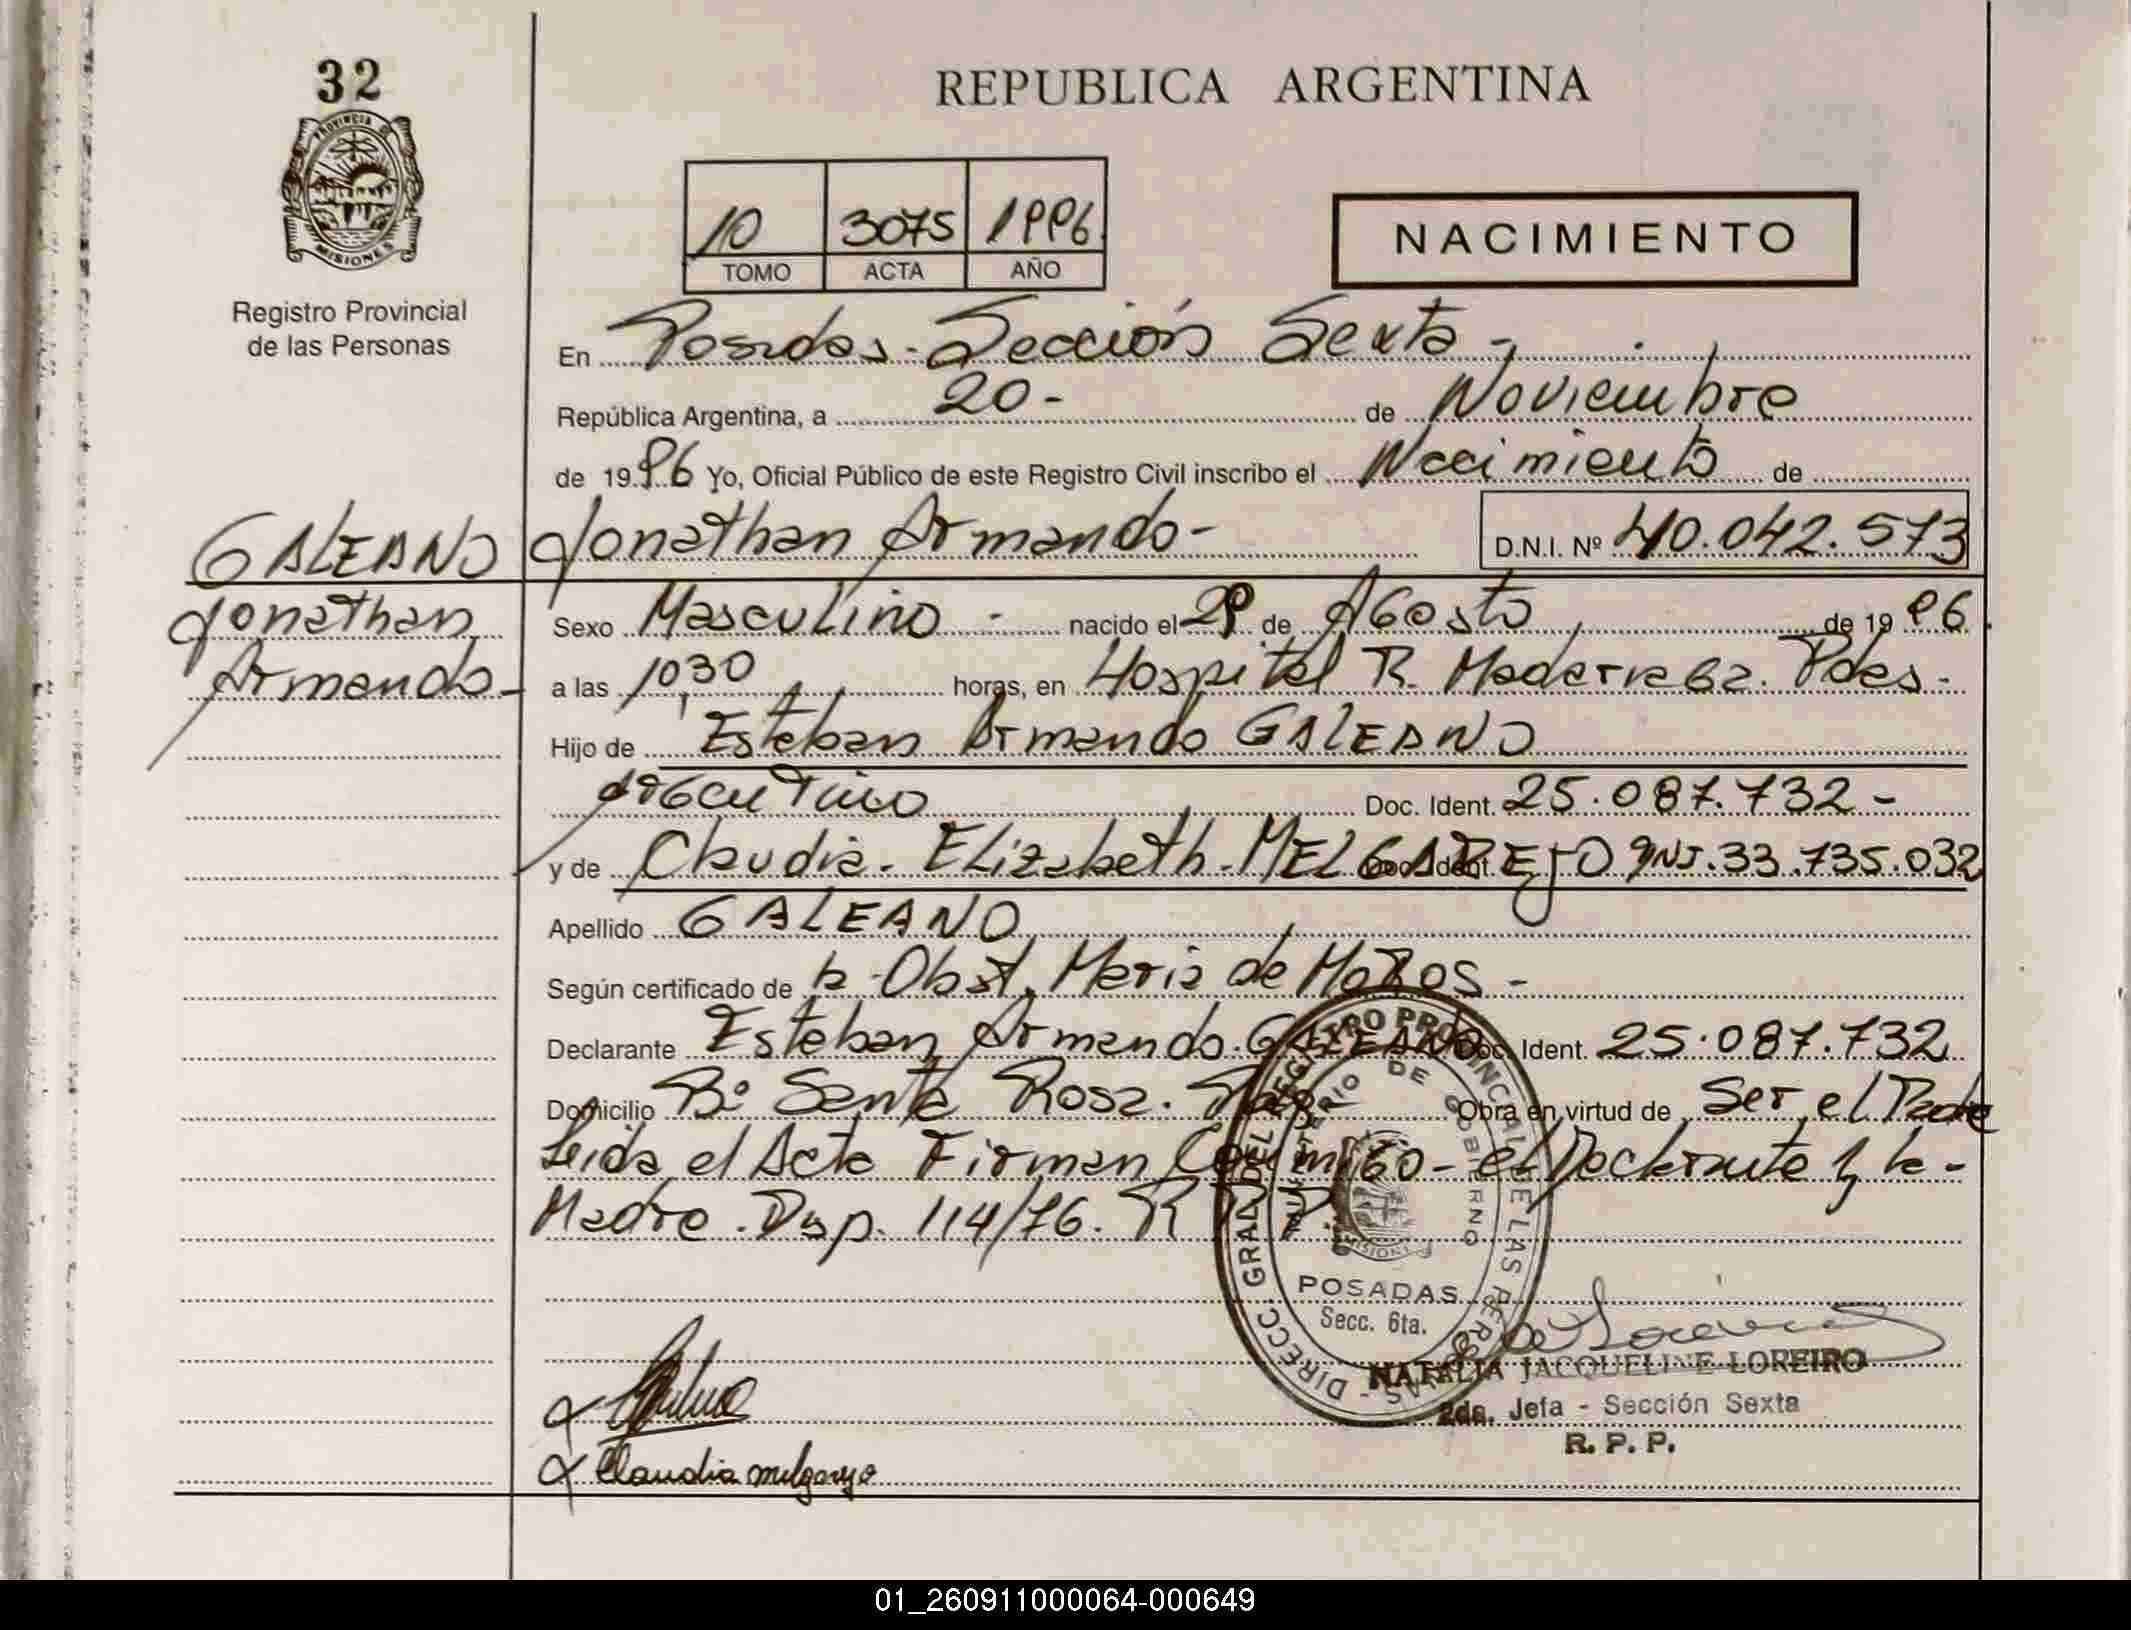 32
REPUBLICA ARGENTINA
PROVINCIA DE
MISIONES
Registro Provincial
de las Personas
10 3075 1996
TOMO ACTA AÑO
NACIMIENTO
En Posadas - Sección Sexta -
República Argentina, a 20 - de Noviembre
de 1996 Yo, Oficial Público de este Registro Civil inscribo el Nacimiento de
GALEANO Jonathan Armando - D.N.I. Nº 40.042.573
Jonathan
Armando -
Sexo Masculino - nacido el 29 de Agosto de 1996
a las 10,30 horas, en Hospital R. Madariaga. Pdas -
Hijo de Esteban Armando GALEANO
argentino Doc. Ident. 25.087.732 -
y de Claudia - Elizabeth - MELGAREJO Doc. Ident. 33.735.032
Apellido GALEANO
Según certificado de la Obst. Maria de MOROS -
Declarante Esteban Armando GALEANO Doc. Ident. 25.087.732
Domicilio Bº Santa Rosa. Pdas Obra en virtud de Ser el Padre
Leida el Acta Firman Conmigo - el Declarante y la -
Madre. Dsp. 114/76. R.P.P.
DIRECC. GRAL. DEL REGISTRO PROVINCIAL DE LAS PERSONAS -
MINISTERIO DE GOBIERNO
MISIONES
POSADAS
Secc. 6ta.
NATALIA JACQUELINE LOREIRO
2da. Jefa - Sección Sexta
R. P. P.
Claudia melgarejo
01_260911000064-000649